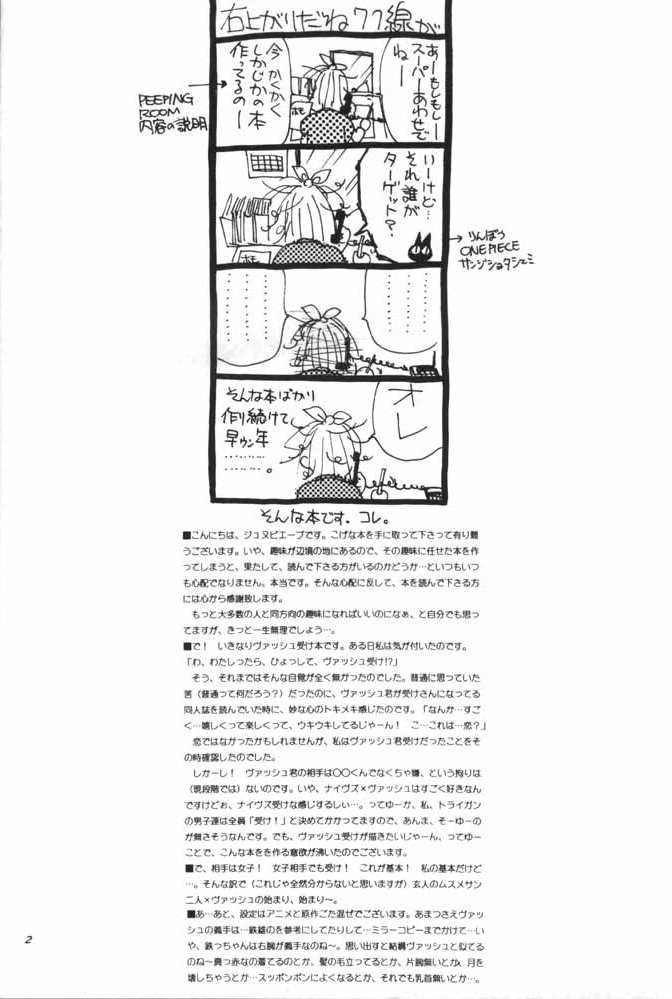 右上がりだね77線が
あーもしもしー
スーパーあわせで
ねー
今 かくかく
しかじかの本
作ってるのー
PEEPING
ROOM
内容の説明
ホモ
いーけど…
それ誰が
ターゲット?
ホモ
りんぼう
ONE PIECE
サンジショタシェミ
………
………
………
………
オレ
そんな本ばかり
作り続けて
早ウン年
………
………。
そんな本です、コレ。
■こんにちは、ジュヌビエーブです。こげな本を手に取って下さって有り難
うございます。いや、趣味が辺境の地にあるので、その趣味に任せた本を作
ってしまうと、果たして、読んで下さる方がいるのかどうか…といつもいつ
も心配でなりません。本当です。そんな心配に反して、本を読んで下さる方
には心から感謝致します。
もっと大多数の人と同方向の趣味になればいいのになぁ、と自分でも思っ
てますが、きっと一生無理でしょう…。
■で! いきなりヴァッシュ受け本です。ある日私は気が付いたのです。
「わ、わたしったら、ひょっして、ヴァッシュ受け!?」
そう、それまではそんな自覚が全く無かったのでした。普通に思っていた
筈(普通って何だろう?)だったのに、ヴァッシュ君が受けさんになってる
同人誌を読んでいた時に、妙な心のトキメキ感じたのです。「なんか…すご
く…嬉しくって楽しくって、ウキウキしてるじゃーん! こ…これは…恋?」
恋ではなかったかもしれませんが、私はヴァッシュ君受けだったことをそ
の時確認したのでした。
しかーし! ヴァッシュ君の相手は○○くんでなくちゃ嫌、という拘りは
(現段階では)ないのです。いや、ナイヴズ×ヴァッシュはすごく好きなん
ですけどぉ、ナイヴズ受けな感じするしぃ…。ってゆーか、私、トライガン
の男子達は全員「受け!」と決めてかかってますので、あんま、そーゆーの
が無さそうなんです。でも、ヴァッシュ受けが描きたいじゃーん、ってゆー
ことで、こんな本をを作る意欲が沸いたのでございます。
■で、相手は女子! 女子相手でも受け! これが基本! 私の基本だけど
…。そんな訳で(これじゃ全然分からないと思いますが)玄人のムスメサン
二人×ヴァッシュの始まり、始まり～。
■あ…あと、設定はアニメと原作ごた混ぜでございます。あまつさえヴァッ
シュの義手は…鉄雄のを参考にしてたりして…ミラーコピーまでかけて…い
や、鉄っちゃんは右腕が義手なのね～。思い出すと結構ヴァッシュと似てる
のね～真っ赤なの着てるのとか、髪の毛立ってるとか、片腕無いとか、月を
壊しちゃうとか…スッポンポンによくなるとか、それでも乳首無いとか…。
2